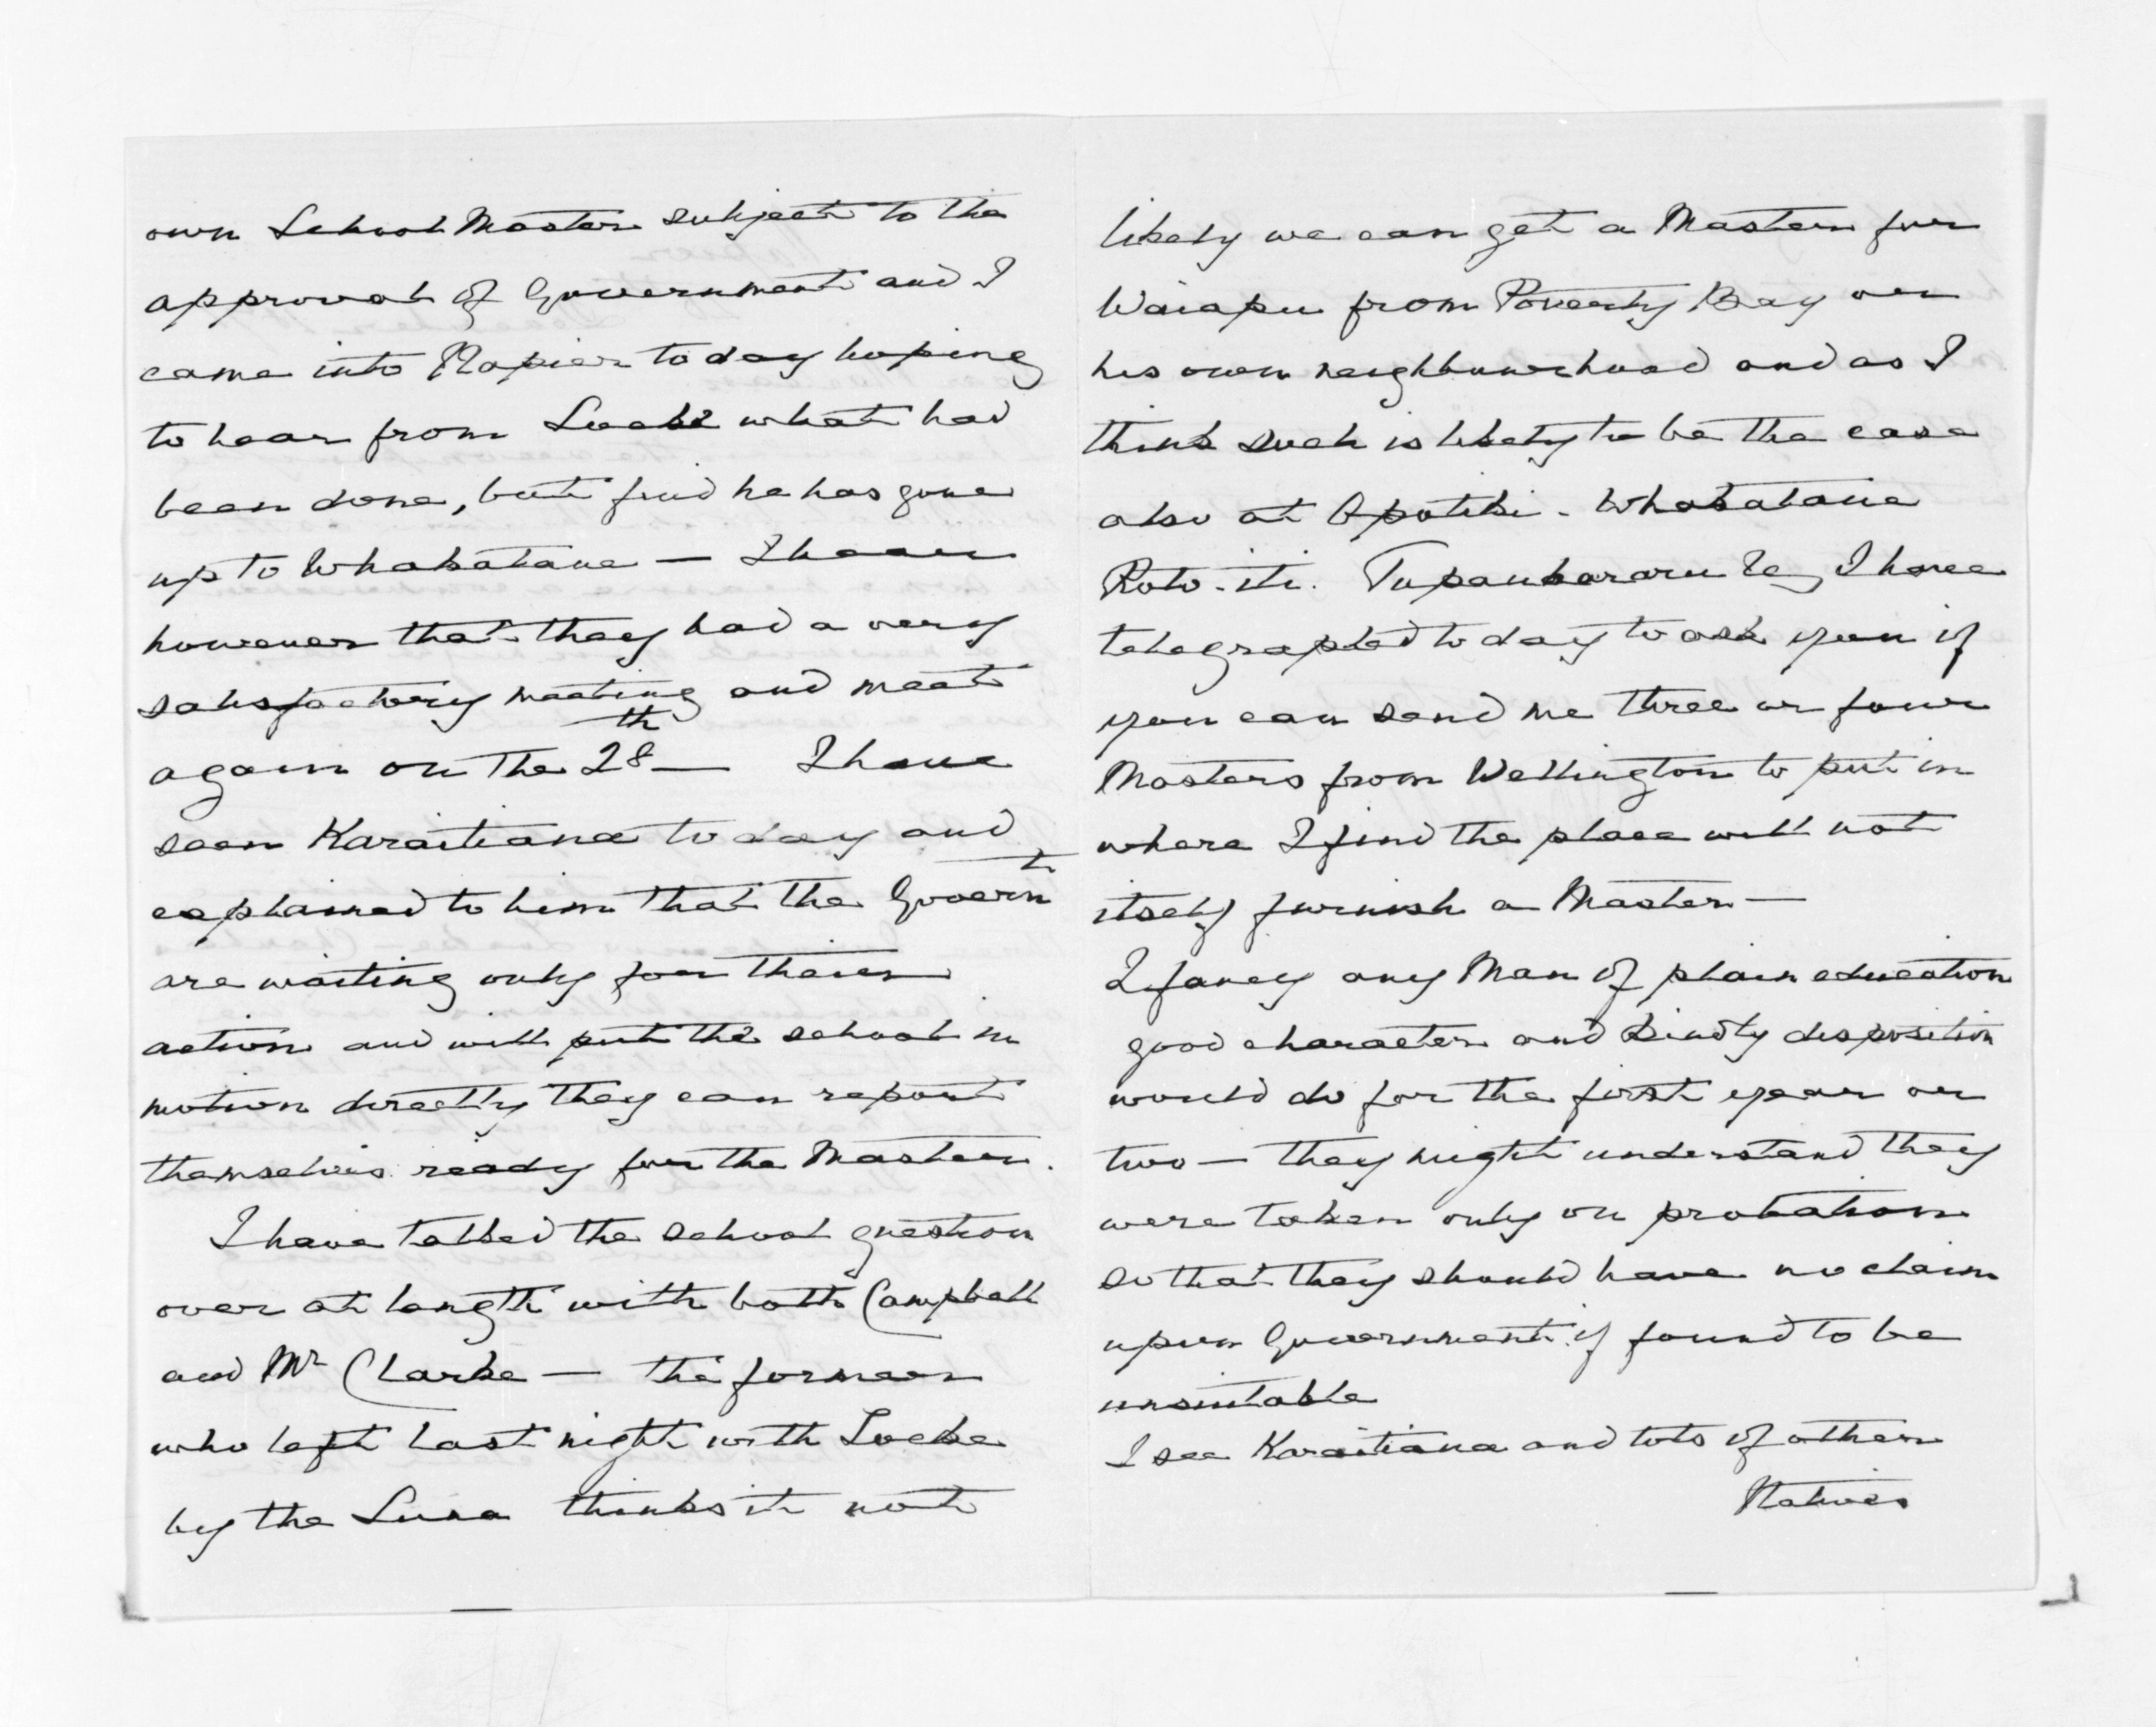 own School Master subject to the
approval of Government and I
came into Napier today hoping
to hear from Locke what had
been done, but find he has gone
up to Whakatane — I hear
however that they had a very
satisfactory meeting and meet
again on the 28th — I have
seen Karaitiana today and
explained to him that the Governt
are waiting only for their
action and will put the school in
motion directly they can report
themselves ready for the Master.
I have talked the school question
over at length with both Campbell
and Mr Clarke — the former
who left last night with Locke
by the Luna thinks it not
likely we can get a Master for
Waiapu from Poverty Bay or
his own neighbourhood and as I
think such is likely to be the case
also at Opotiki - Whakatane
Roto-iti. Tapaukararu &c I have
telegraphed to day to ask you if
you can send me three or four
Masters from Wellington to put in
where I find the place will not
itself furnish a Master —
I fancy any Man of plain education
good character and kindly disposition
would do for the first year or
two — they might understand they
were taken only on probation
so that they should have no claim
upon Government if found to be
unsuitable
I see Karaitiana and lots of other
Natives